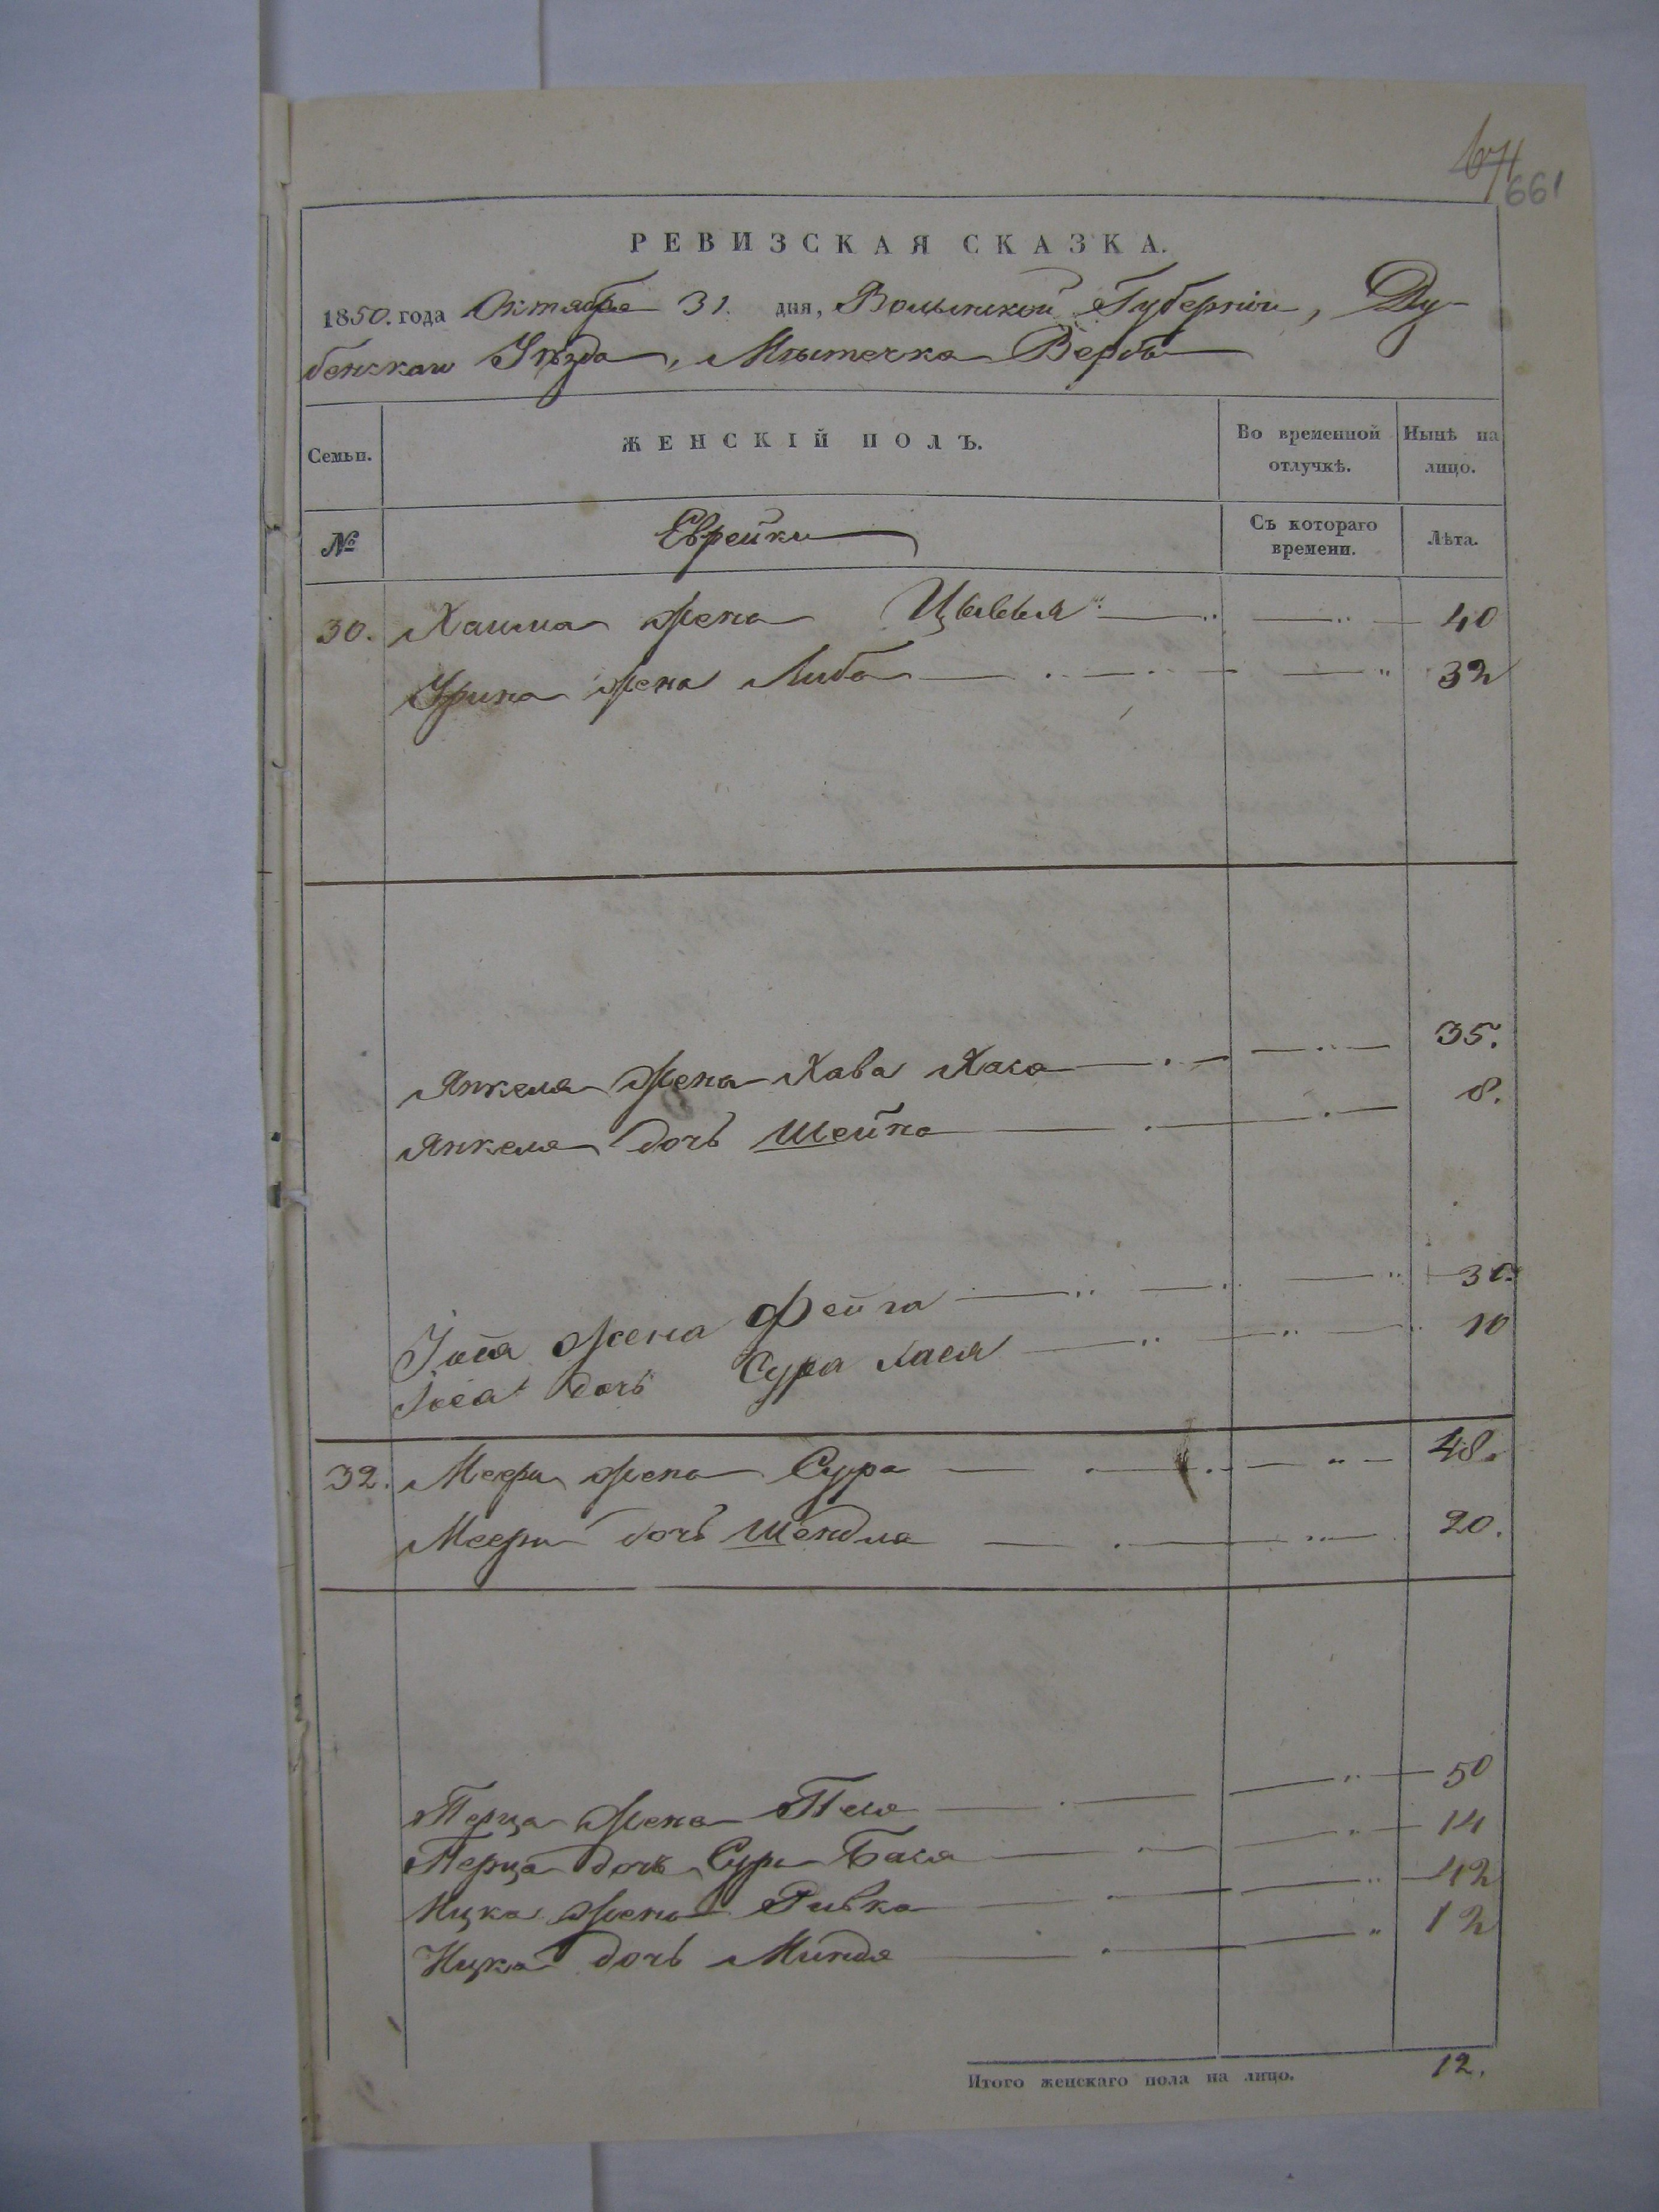 661
РЕВИЗСКАЯ СКАЗКА.
1850. года Октября 31. дня, Волынской Губерніи, Ду-
бенскаго Уѣзда, Мѣстечка Верба
Семьи. ЖЕНСКІЙ ПОЛЪ. Во временной отлучкѣ. Нынѣ на лицо.
№ Еврейки Съ котораго времени. Лѣта.
30. Хаима жена Цывья 40
жена Либа 32
Янкеля жена Хава Хася 35.
Янкеля дочь Шейна 8.
жена Фейга
дочь Сура Хася 10
32. Меера жена Сура 48.
Меера дочь Шендля 20.
Перца жена Песя 50
Перца дочь Сура Бася 14
Ицка жена Ривка 42
Ицка дочь Миндя 12
Итого женскаго пола на лицо. 12.